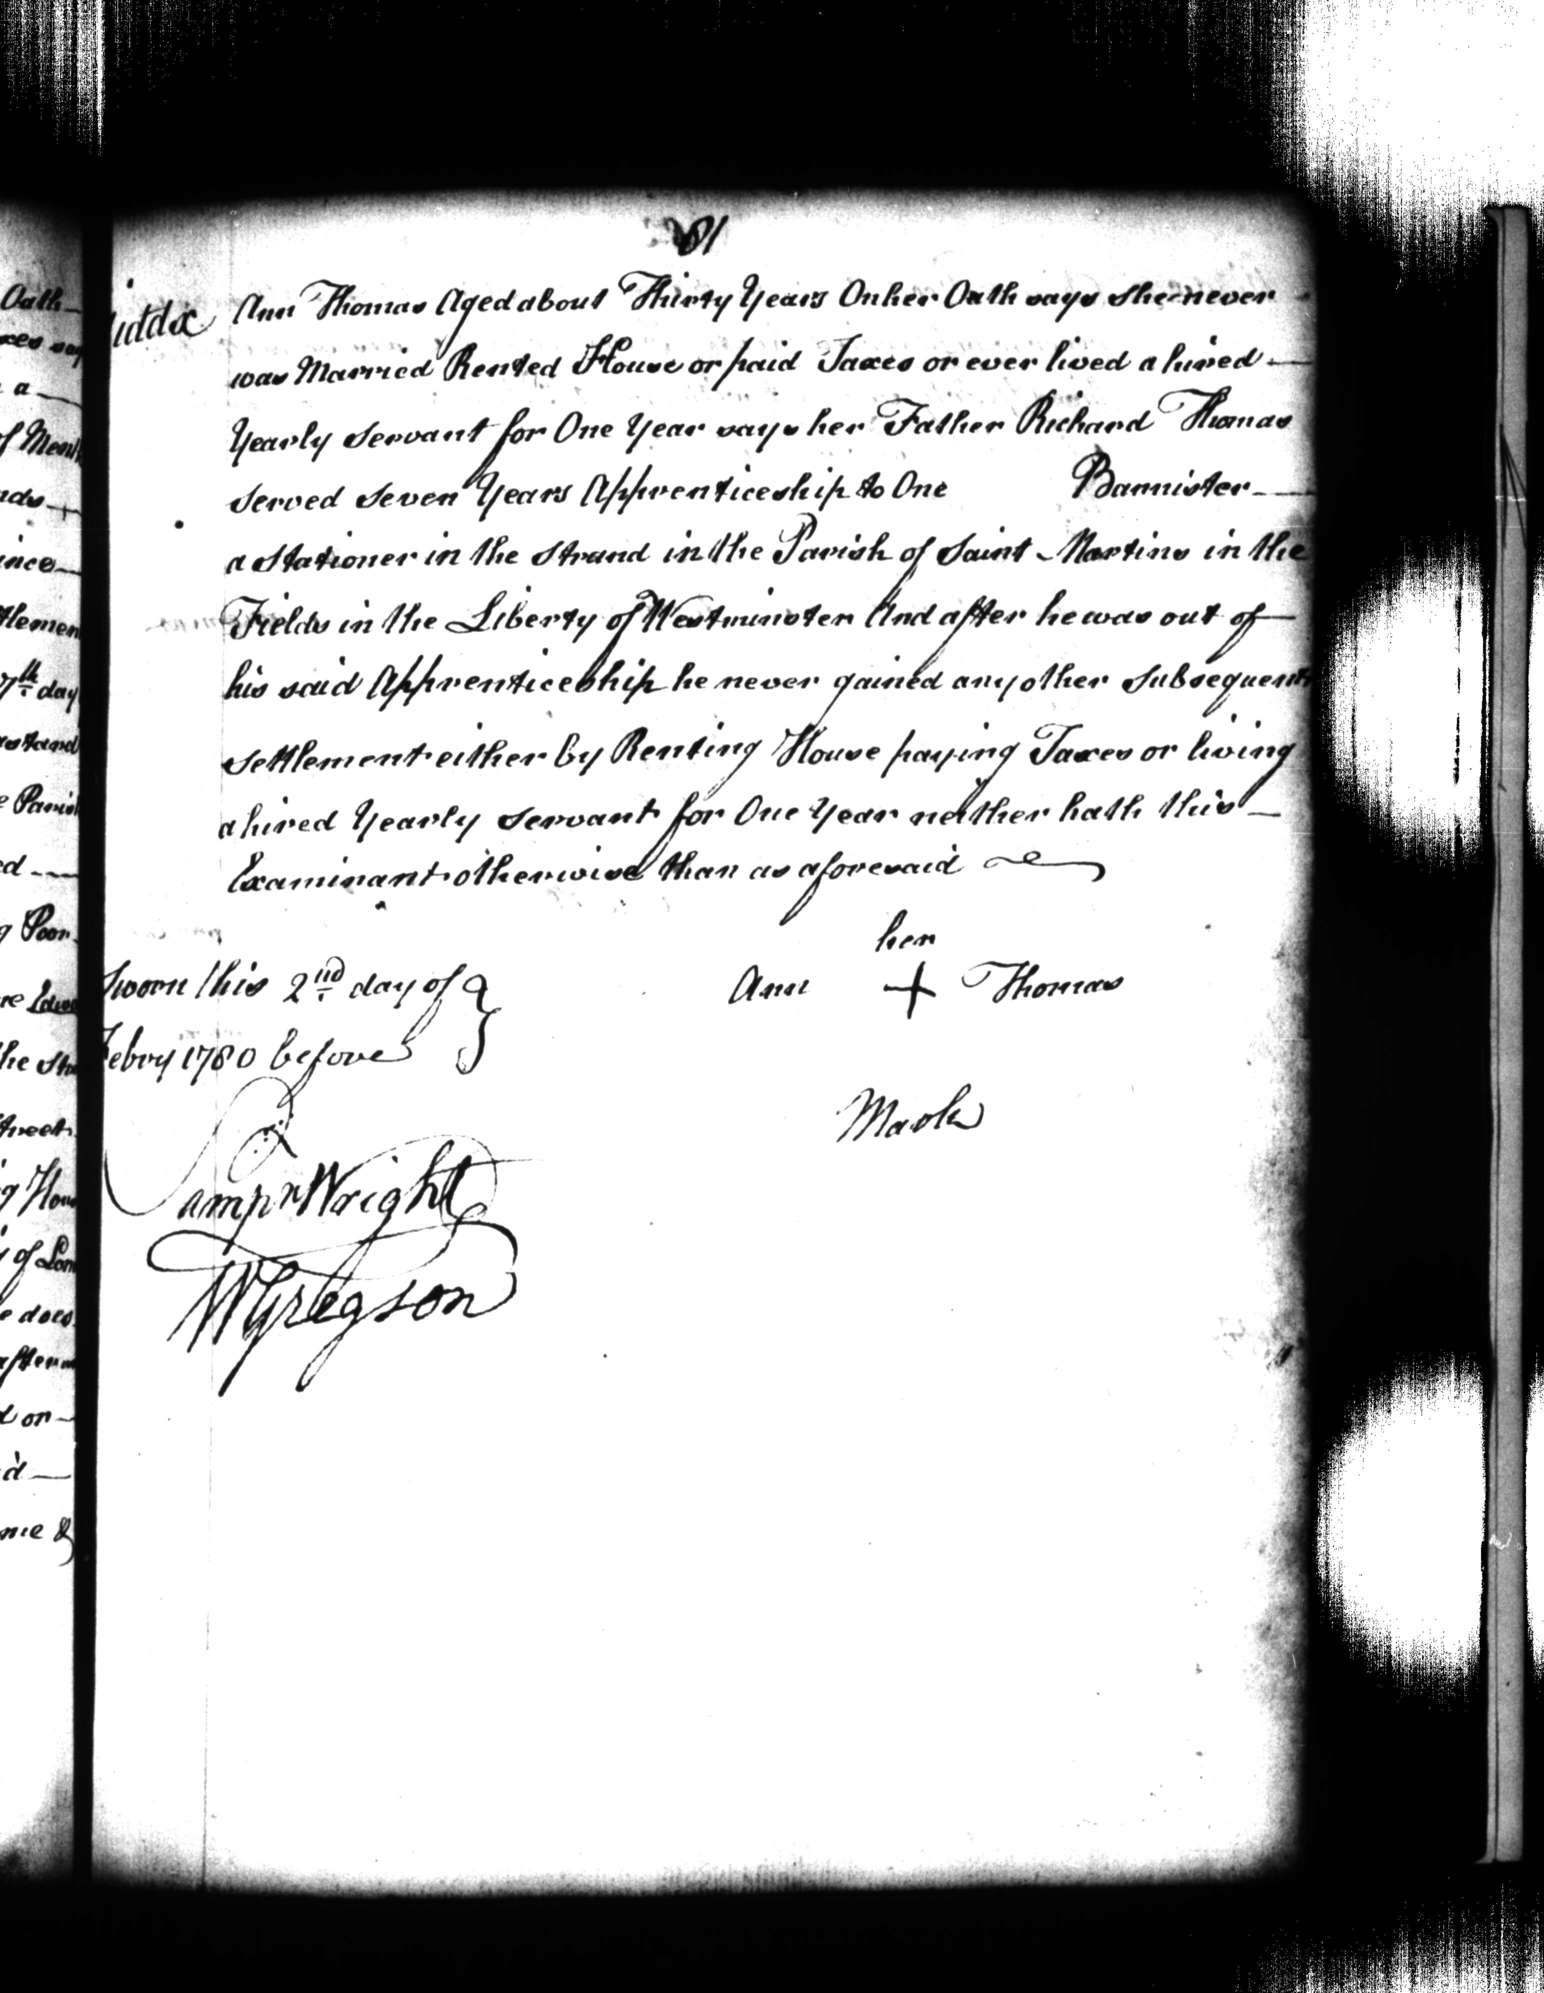 81
Middx Ann Thomas Aged about Thirty Years On her Oath says She never
was Married Rented House or paid Taxes or ever lived a hired
Yearly Servant for One Year says her Father Richard Thomas
Served Seven Years Apprenticeship to One Bannister
a Stationer in the Strand in the Parish of Saint Martins in the
Fields in the Liberty of Westminster And after he was out of
his said Apprenticeship he never gained any other Subsequent
Settlement either by Renting House paying Taxes or living
a hired Yearly Servant for One Year neither hath this
Examinant otherwise than as aforesaid
her
Sworn this 2nd day of } Ann + Thomas
Febry 1780 before
Mark
Sampn Wright
W Gregson
Oath
a
ince
7th day
Poor
Street
of Lon
does
after
d or
me &